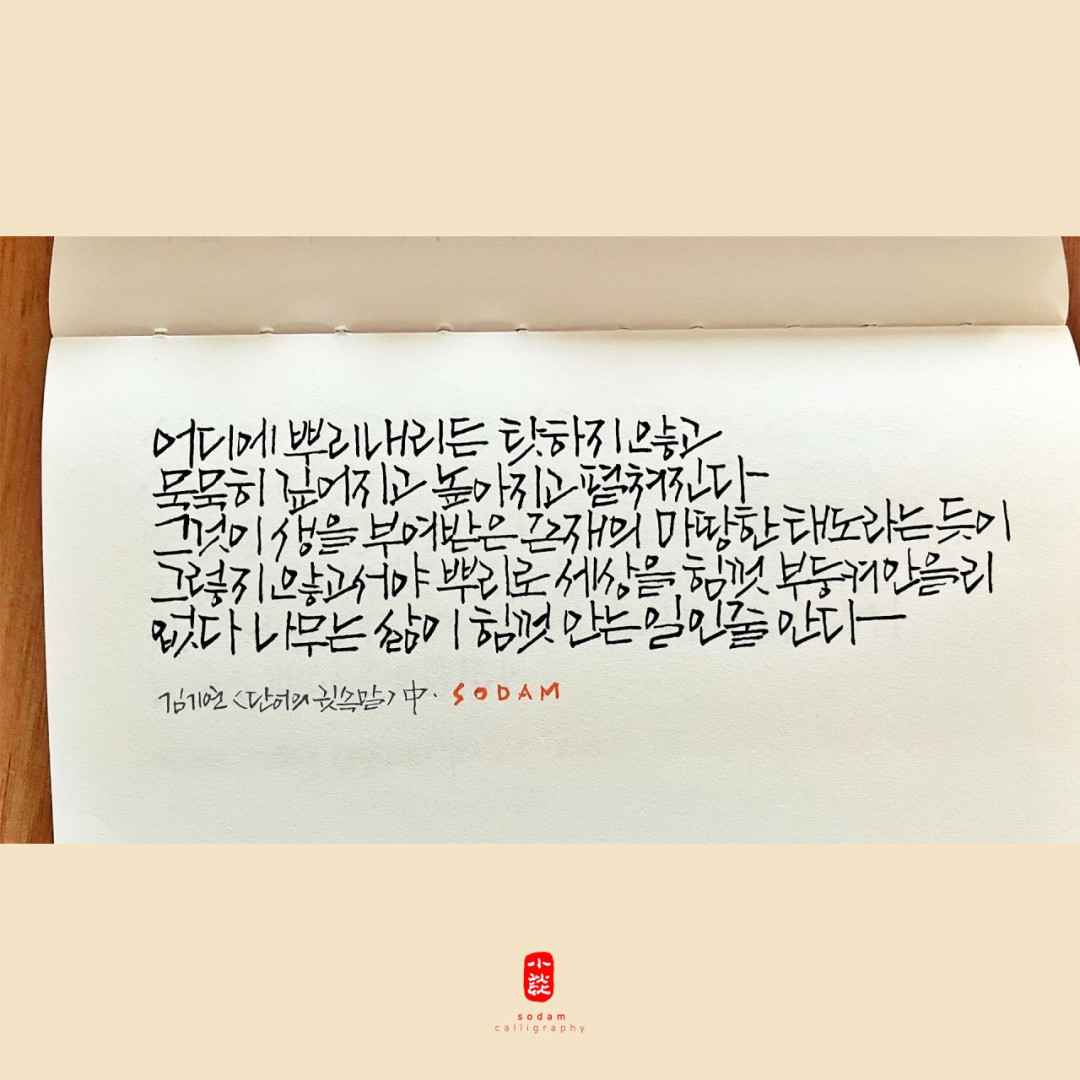 어디에 뿌리내리든 탓하지 않고
묵묵히 깊어지고 높아지고 펼쳐진다
그것이 생을 부여받은 존재의 마땅한 태도라는듯이
그렇지 않고서야 뿌리로 세상을 힘껏 부둥켜안을리
없다 나무는 삶이 힘껏 안는 일인줄 안다
김기연 <단어의 귓속말> 中. SODAM
小談
sodam
calligraphy